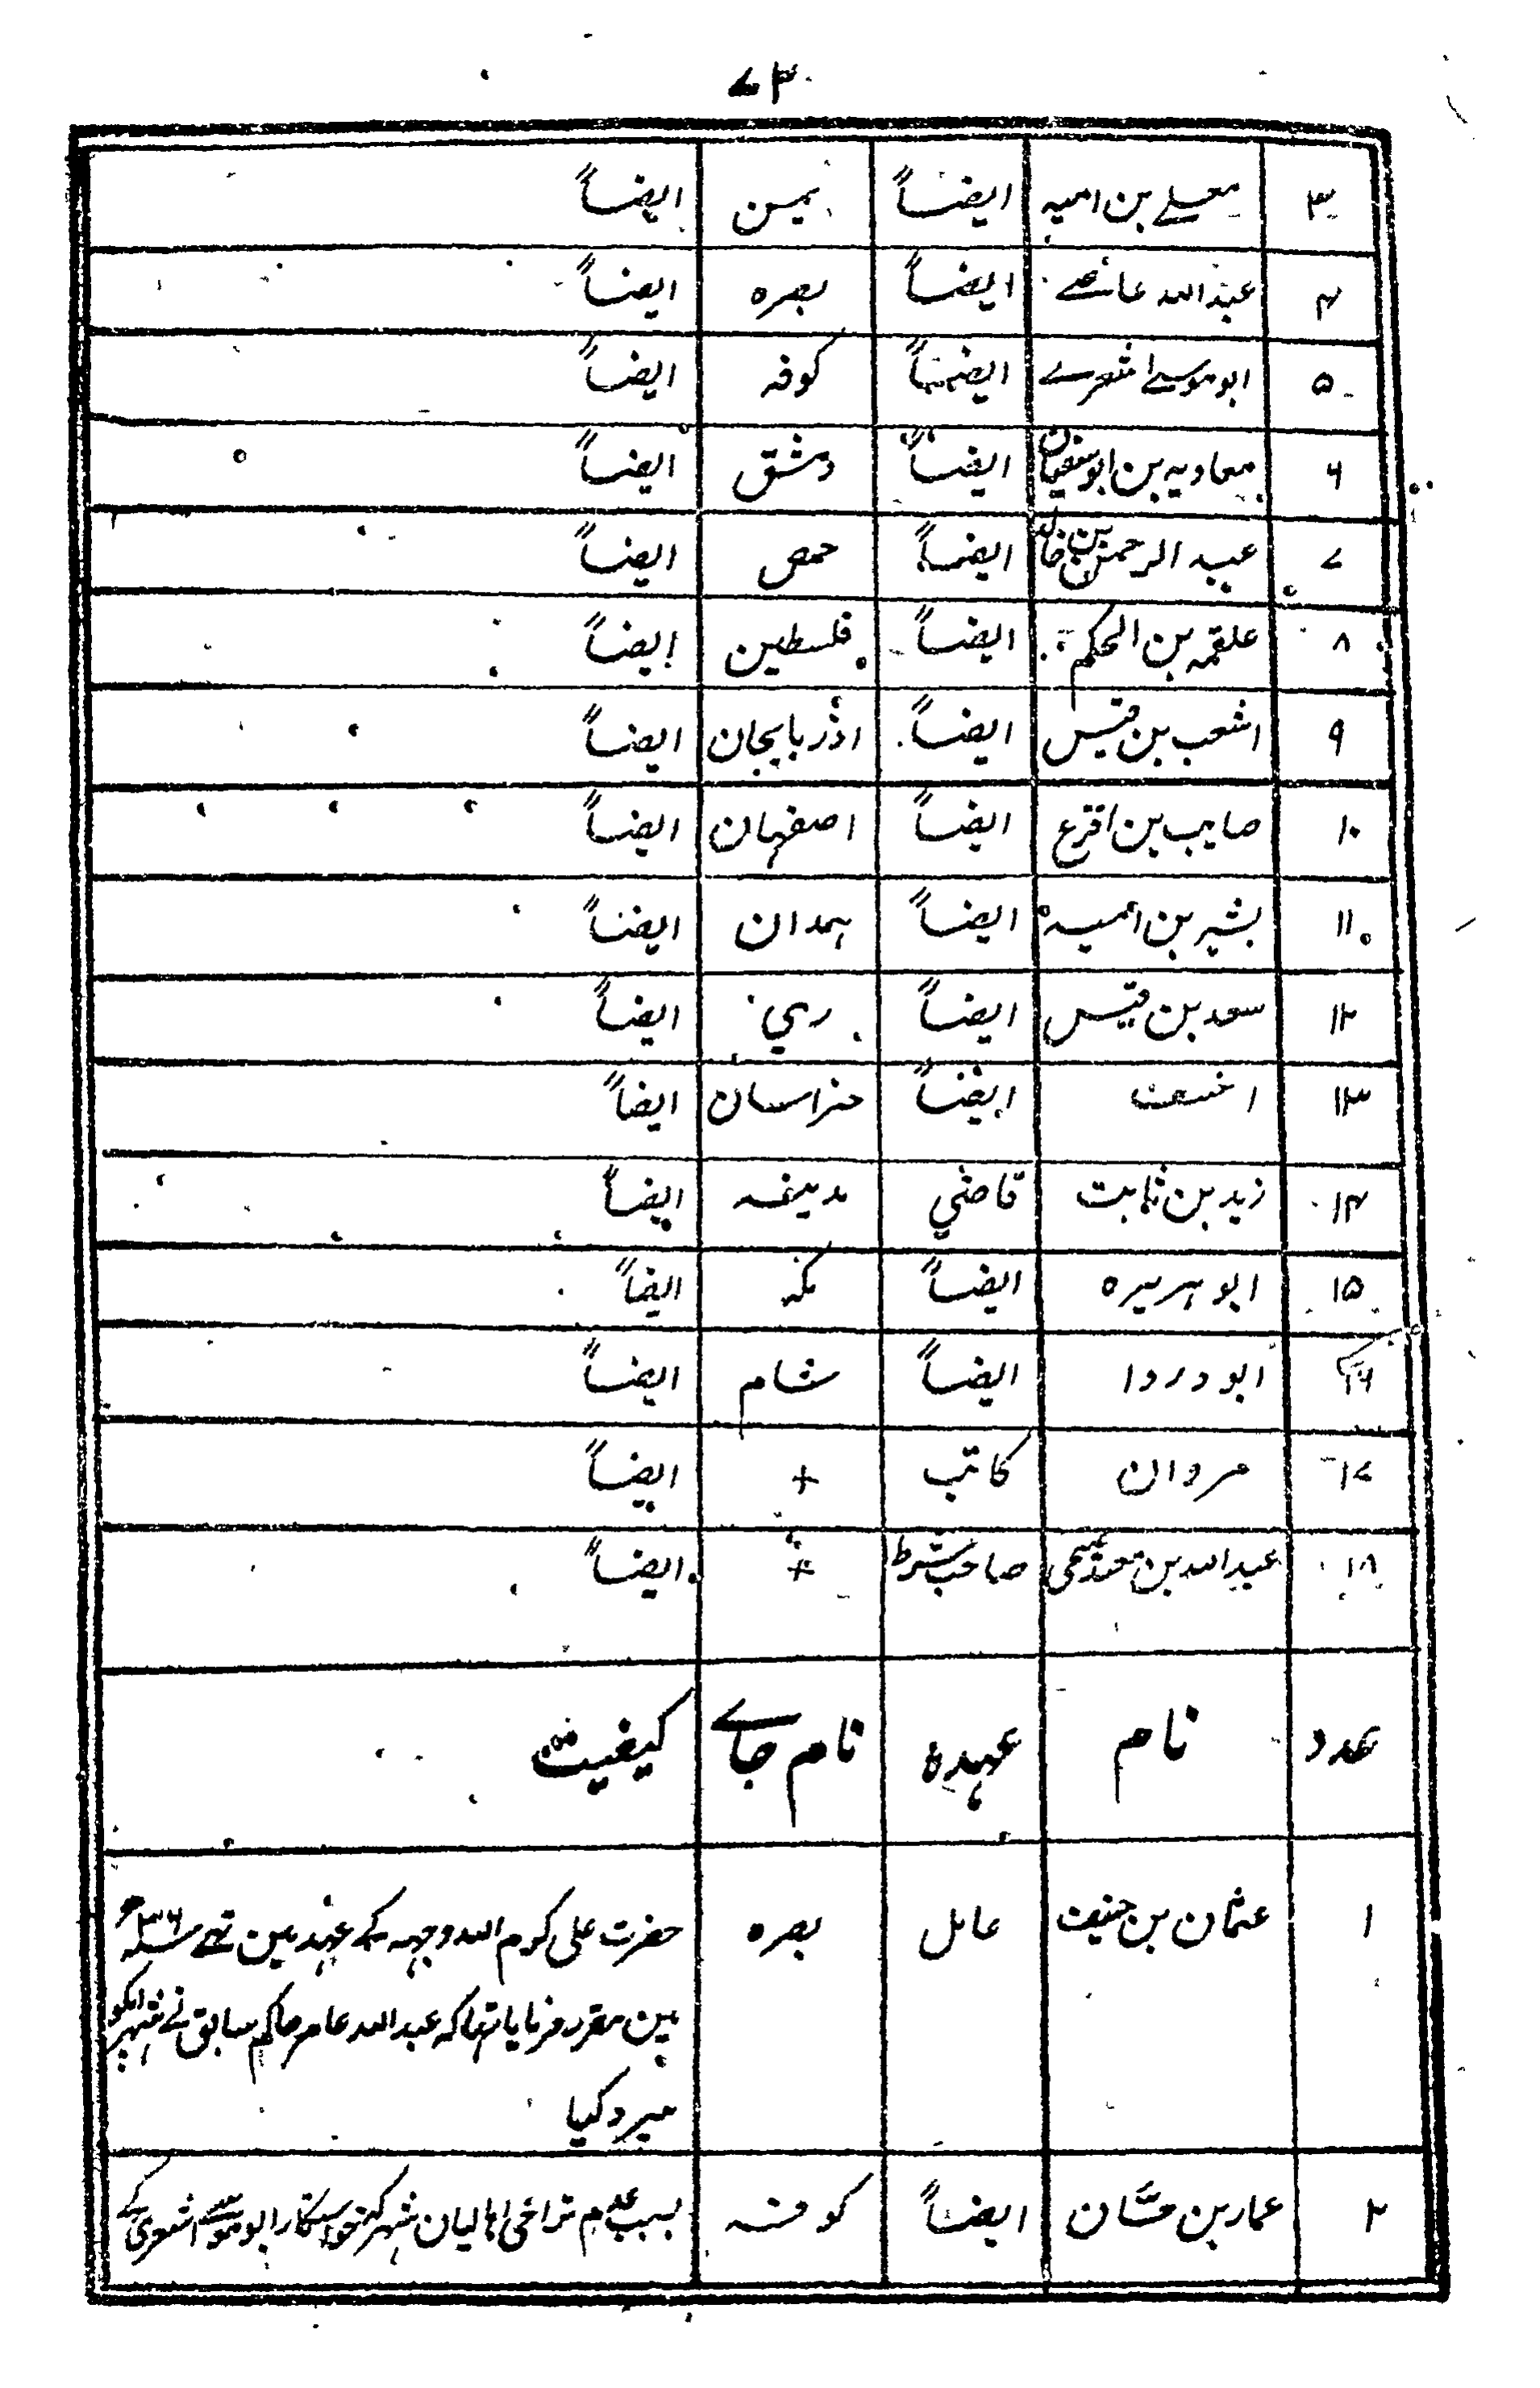 ۷۳
۳ معلے بن امیہ ایضاً یمین ایضاً
۴ عبداللہ ایضاً بصرہ ایضاً
۵ ابوموسے اشعرے ایضاً کوفہ ایضاً
۶ معاویہ بن ابوسفیان ایضاً دمشق ایضاً
۷ عبد الرحمن بن خالد ایضاً حمص ایضاً
۸ علقمہ بن الحکم ایضاً فلسطین ایضاً
۹ اشعب بن قیس ایضاً اذربایجان ایضاً
۱۰ صایب بن اقرع ایضاً اصفہان ایضاً
۱۱ بشیر بن امیہ ایضاً ہمدان ایضاً
۱۲ سعد بن قیس ایضاً ری ایضاً
۱۳ ایضاً خراسان ایضاً
۱۴ زید بن ثابت قاضی مدینہ ایضاً
۱۵ ابو ہریرہ ایضاً مکہ ایضاً
۱۶ ابو دردا ایضاً شام ایضاً
۱۷ مروان کاتب + ایضاً
۱۸ عبداللہ بن صاحب شرط + ایضاً
عدد نام عہدہ نام جاے کیفیت
۱ عثمان بن حنیف عامل بصرہ حضرت علی کرم اللہ وجہہ کے عہد مین تھے سنہ ۳۶
مین مقرر فرمایا تہا کہ عبداللہ عامر حاکم سابق نے شہر انکو
سپرد کیا
۲ عمار بن حسّان ایضاً کوفہ بسبب عدم تراضی اہالیان شہر کہ خواستگار ابو موسے اشعری کے